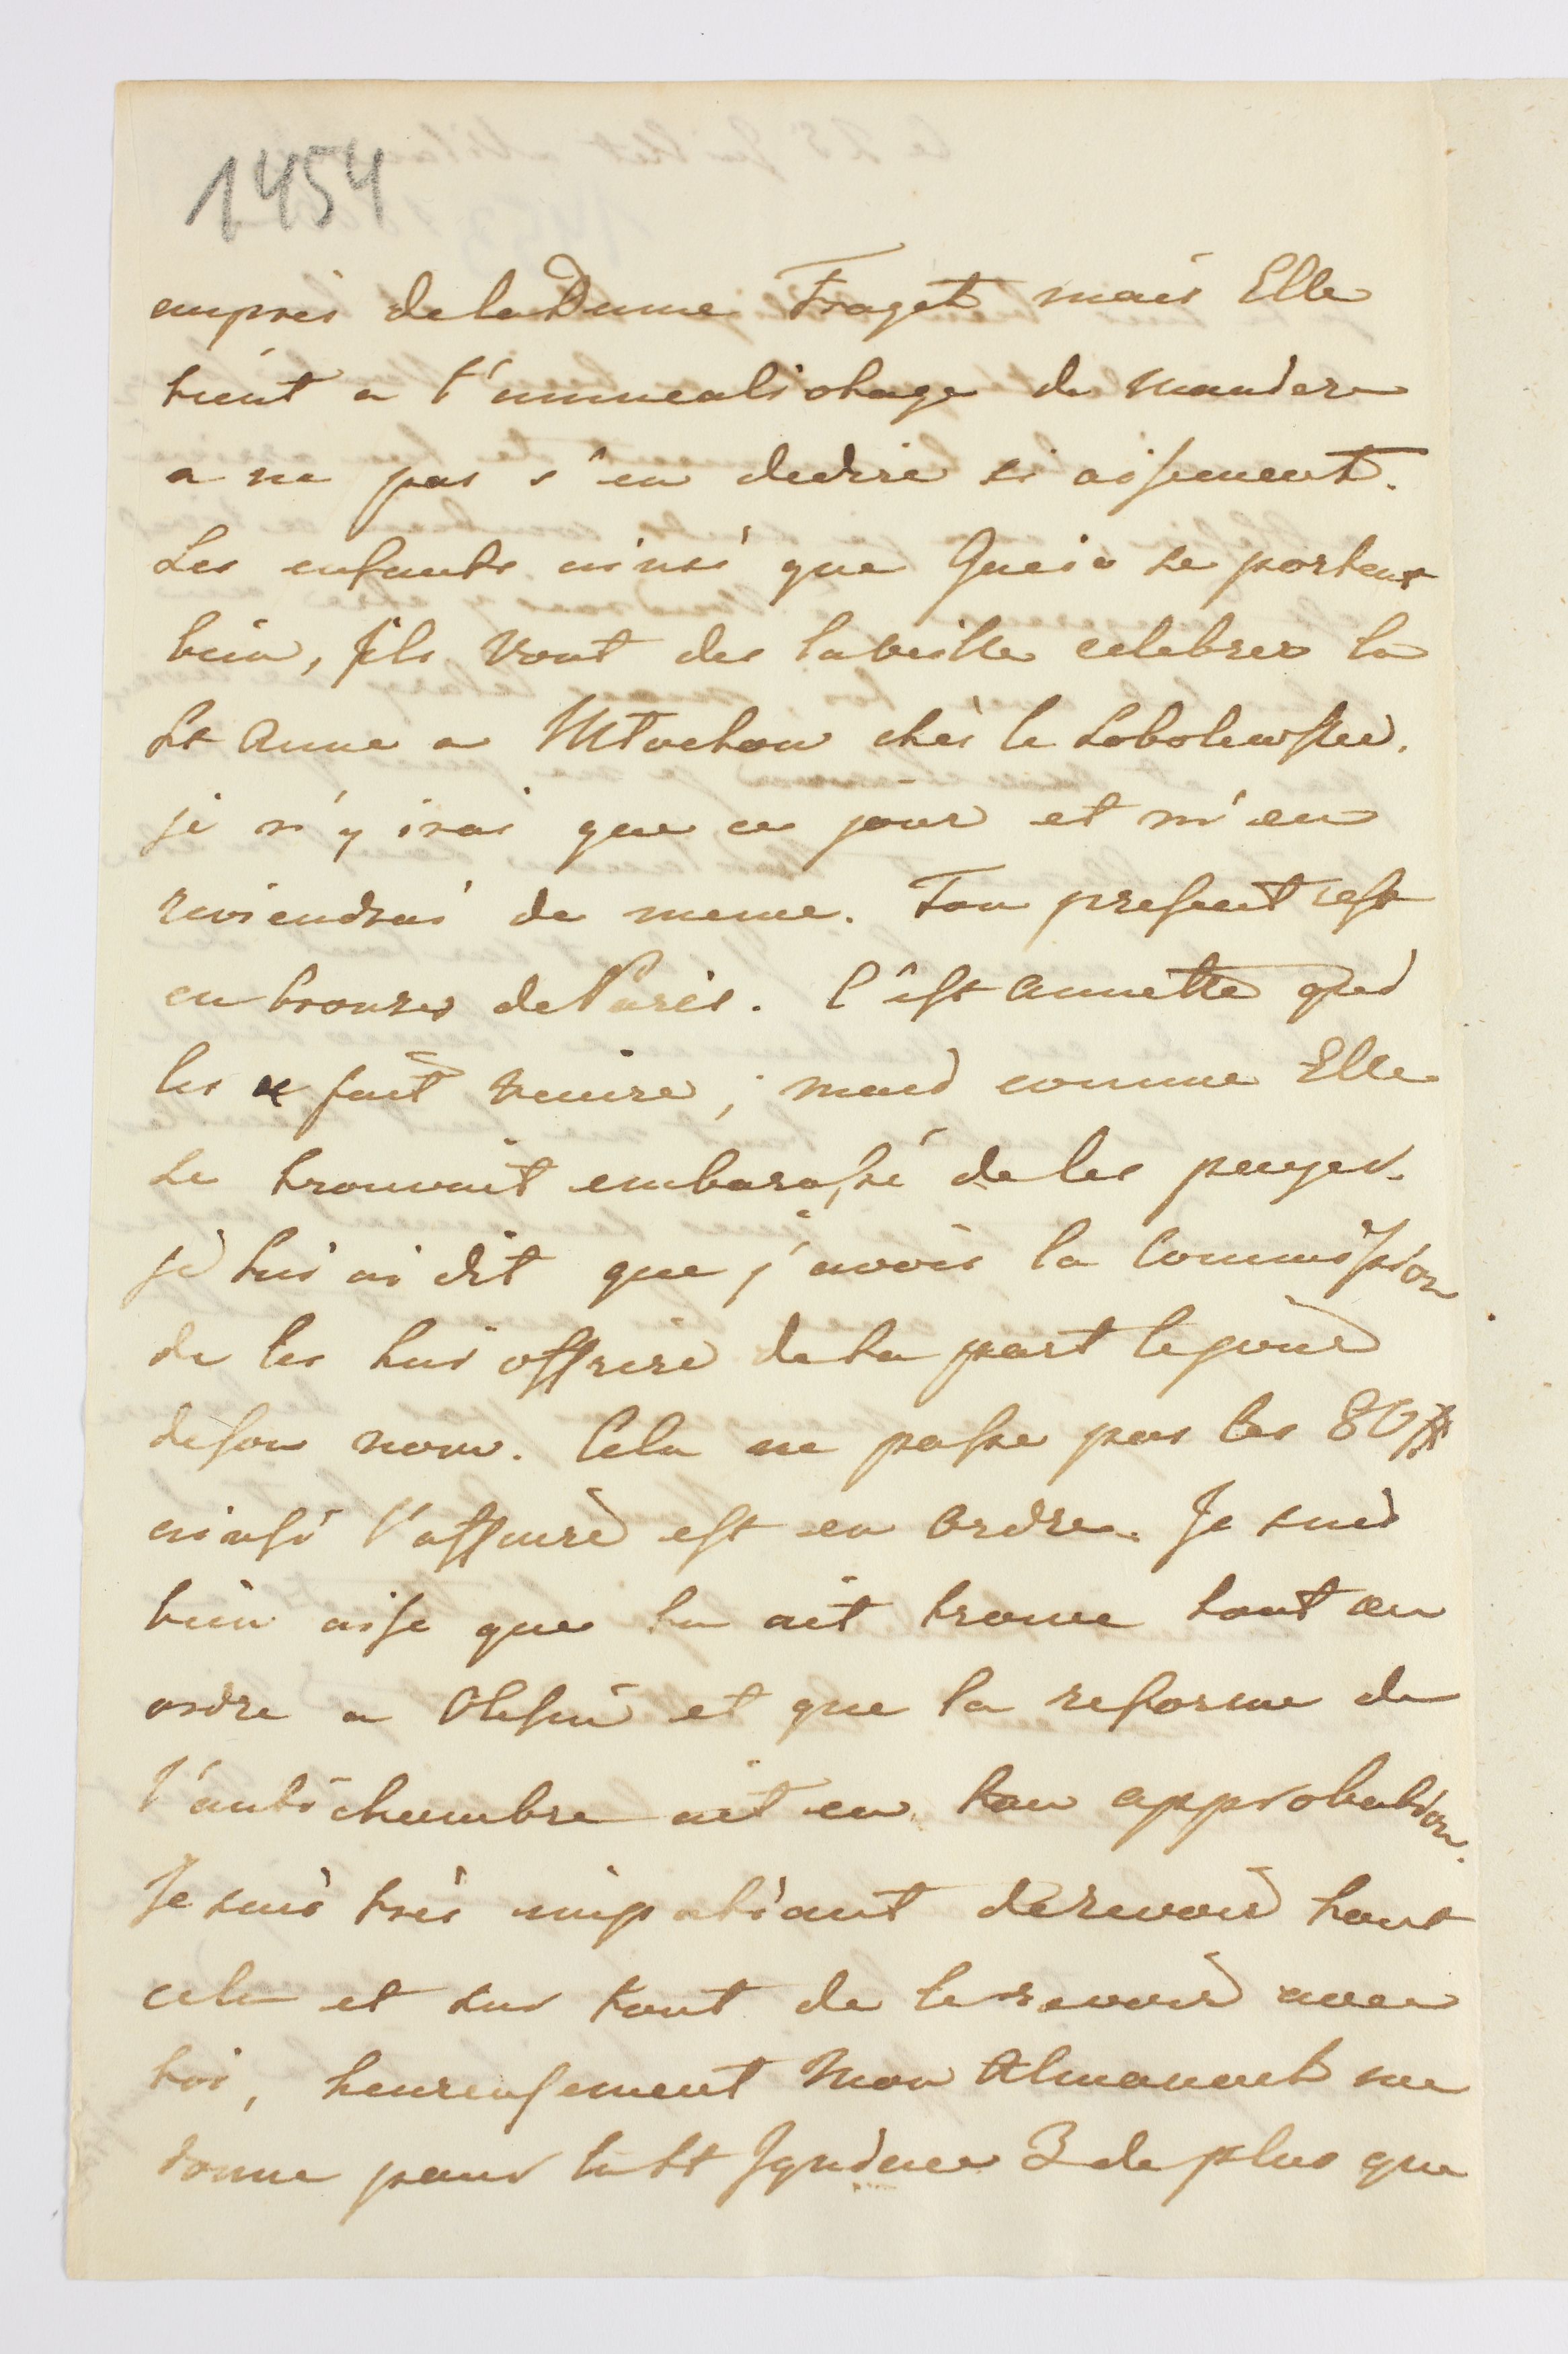 1454
aupres de la Dame Fraget mais Elle
tient a l'emmealiotage de maniere
a ne pas s'en dedire si aisement.
Les enfants ainsi que Gucio se portent
bien, Ils vont des la veille celebrer la
St Anne a Mtochow chès le Sobolewski.
je n'y irai que ce jour et m'en
reviendrai de meme. Ton present est
en bronze de Paris. C'est Annette qui
les a fait venire; mais comme Elle
se trouvait embarassé de les payer.
je lui ai dit que j'avois la Commission
de les lui offrire de ta part le jour
de son nom. Cela ne passe pas les 80 #
ainsi l'affaire est en ordre. Je suis
bien aise que tu ait trouve tout en
ordre a Olesin et que la reforme de
l'antichambre ait eu ton approbation.
Je suis très impatiant de revoir tout
cela et sur tout de le revoir avec
toi, heureusement Mon Almanack me
donne pour la St Ignace 3 de plus que